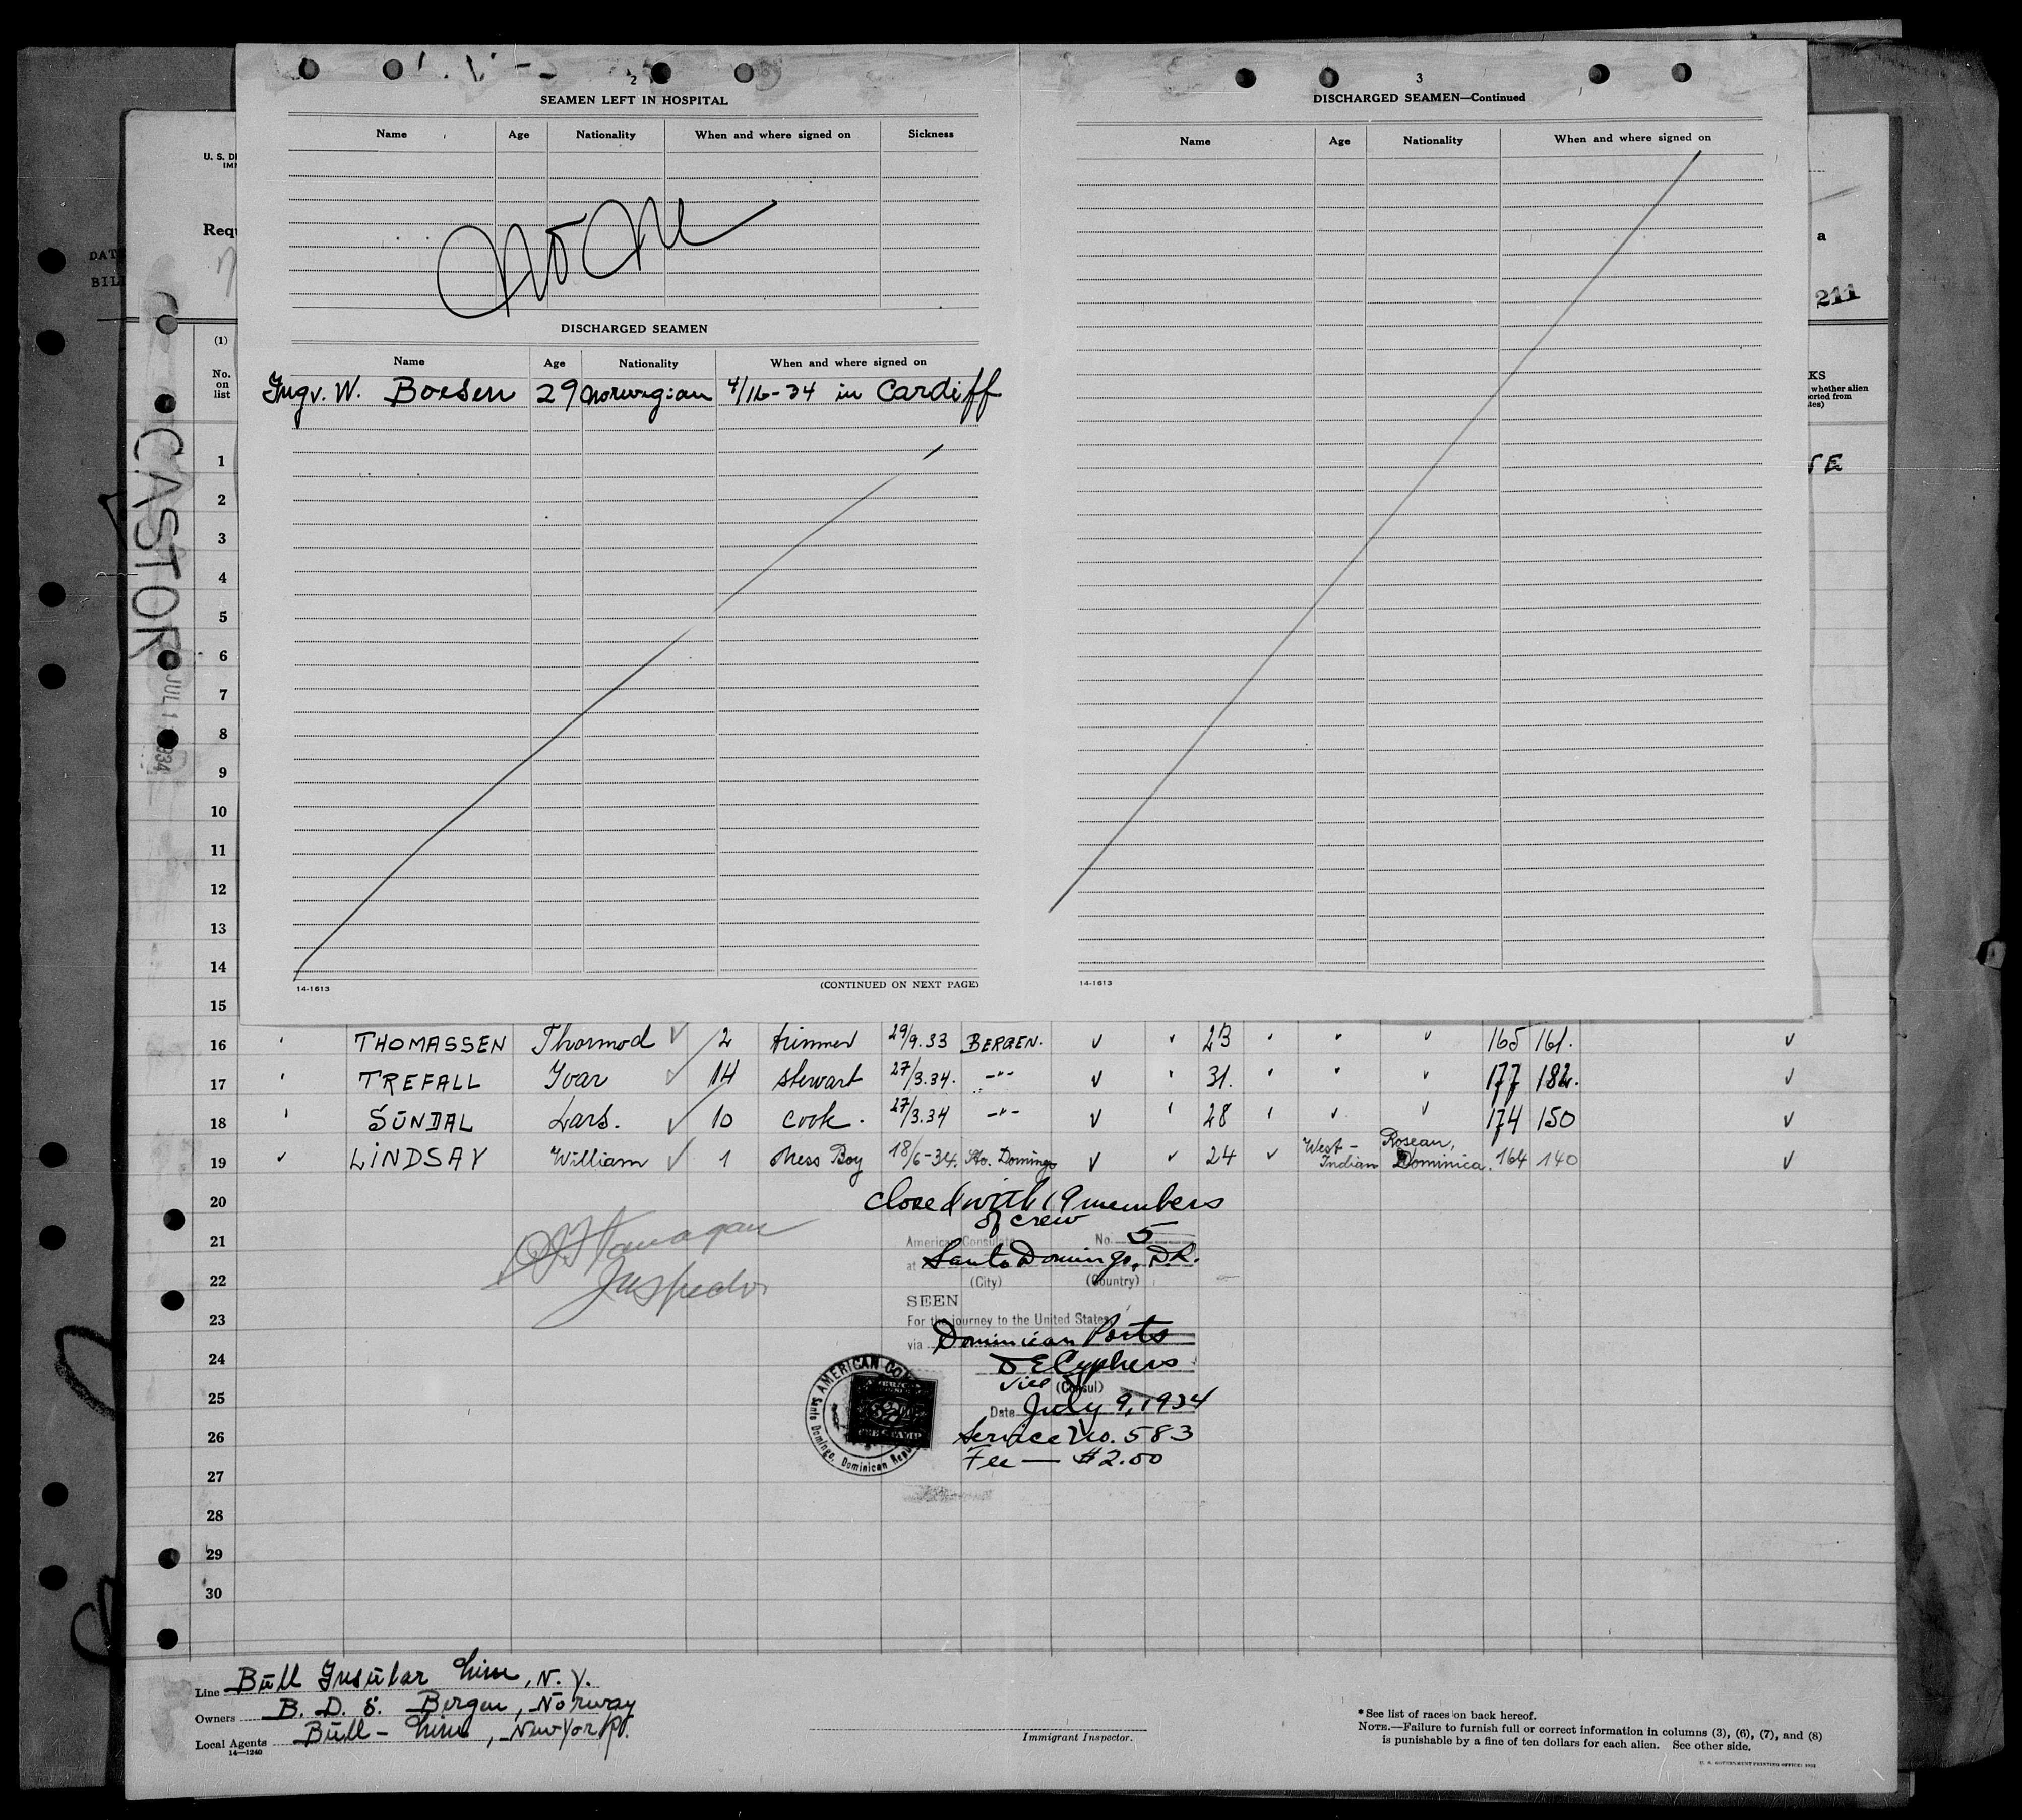 2
SEAMEN LEFT IN HOSPITAL
Name Age Nationality When and where signed on Sickness
None
DISCHARGED SEAMEN
Name Age Nationality When and where signed on
Ingv. W. Boesen 29 Norwegian 4/16-34 in Cardiff
14-1613 (CONTINUED ON NEXT PAGE)
3
DISCHARGED SEAMEN—Continued
Name Age Nationality When and where signed on
14-1613
U. S. D
IM
Requ
DAT
BIL
a
211
(1)
No.
on
list
KS
whether alien
orted from
tes)
CASTOR
JUL 1 1934
1
2
3
4
5
6
7
8
9
10
11
12
13
14
15
16 THOMASSEN Thormod 2 trimmer 29/9.33 BERGEN. 23 165 161.
17 TREFALL Ivar 14 stewart 27/3.34. -"- 31. 177 182.
18 SŪNDAL Lars. 10 cook. 27/3.34 -"- 28 174 150
19 LINDSAY William 1 Mess Boy 18/6-34. Sto. Domingo 24 West-Indian Roseau, Dominica. 164 140
20
21
22
23
24
25
26
27
28
29
30
Closed with 19 members
of crew
American Consulate No. 5
at Santo Domingo, D.R.
(City) (Country)
SEEN
For the journey to the United States
via Dominican Ports
D E Cyphers
Vice (Consul)
Date July 9, 1934
Service No. 583
Fee — $2.00
AMERICAN CO
Santo Domingo, Dominican Repu
Inspector
Line Būll Insūlar Line, N.Y.
Owners B. D. S. Bergen, Norway
Local Agents Būll-Line, New York.
14—1240
Immigrant Inspector.
*See list of races on back hereof.
NOTE.—Failure to furnish full or correct information in columns (3), (6), (7), and (8)
is punishable by a fine of ten dollars for each alien. See other side.